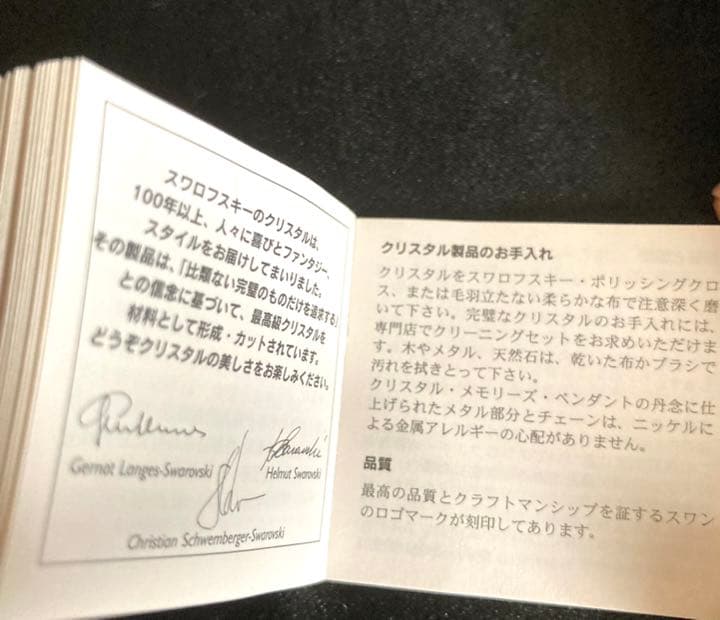 スワロフスキーのクリスタルは、
100年以上、人々に喜びとファンタジー、
スタイルをお届けしてまいりました。
その製品は、「比類ない完璧のものだけを追求する」
との信念に基づいて、最高級クリスタルを
材料として形成・カットされています。
どうぞクリスタルの美しさをお楽しみください。
Gernot Langes-Swarovski
Helmut Swarovski
Christian Schwemberger-Swarovski
クリスタル製品のお手入れ
クリスタルをスワロフスキー・ポリッシングクロ
ス、または毛羽立たない柔らかな布で注意深く磨
いて下さい。完璧なクリスタルのお手入れには、
専門店でクリーニングセットをお求めいただけま
す。木やメタル、天然石は、乾いた布かブラシで
汚れを拭きとって下さい。
クリスタル・メモリーズ・ペンダントの丹念に仕
上げられたメタル部分とチェーンは、ニッケルに
よる金属アレルギーの心配がありません。
品質
最高の品質とクラフトマンシップを証するスワン
のロゴマークが刻印してあります。